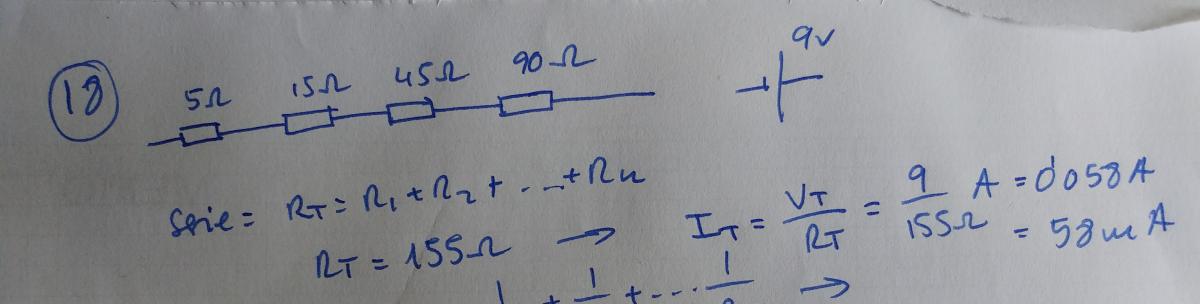 18
5Ω 15Ω 45Ω 90Ω 9V
Serie = RT = R1 + R2 + ... + Rn
RT = 155Ω → IT = VT/RT = 9/155Ω A = 0'058A
= 58mA
1/ + 1/ + ... 1/ →